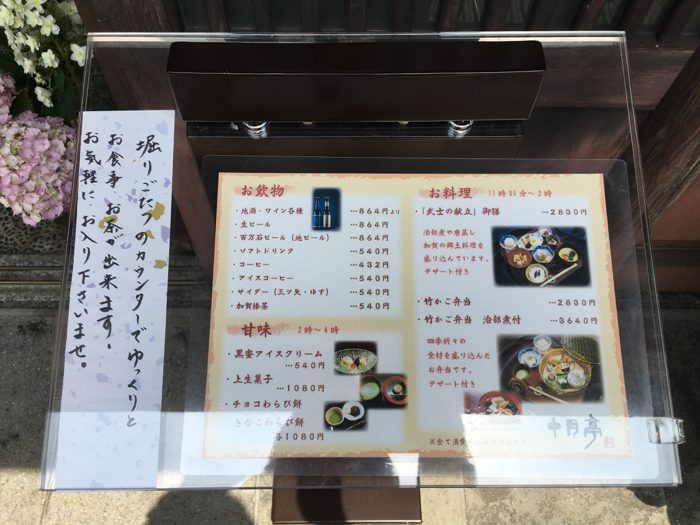 堀りごたつのカウンターでゆっくりと
お食事、お茶が出来ます。
お気軽に、お入り下さいませ。
お飲物
・地酒・ワイン各種 …864円より
・生ビール …864円
・百万石ビール（地ビール） …864円
・ソフトドリンク …540円
・コーヒー …432円
・アイスコーヒー …540円
・サイダー（三ツ矢・ゆず） …540円
・加賀棒茶 …540円
甘味 2時～4時
・黒蜜アイスクリーム
…540円
・上生菓子
…1080円
・チョコわらび餅
きなこわらび餅
各1080円
お料理 11時30分～2時
・「武士の献立」御膳 …2830円
治部煮や唐蒸し
加賀の郷土料理を
盛り込んでいます。
デザート付き
・竹かご弁当 …2830円
・竹かご弁当 治部煮付 …3640円
四季折々の
食材を盛り込んだ
お弁当です。
デザート付き
※全て消費
十月亭